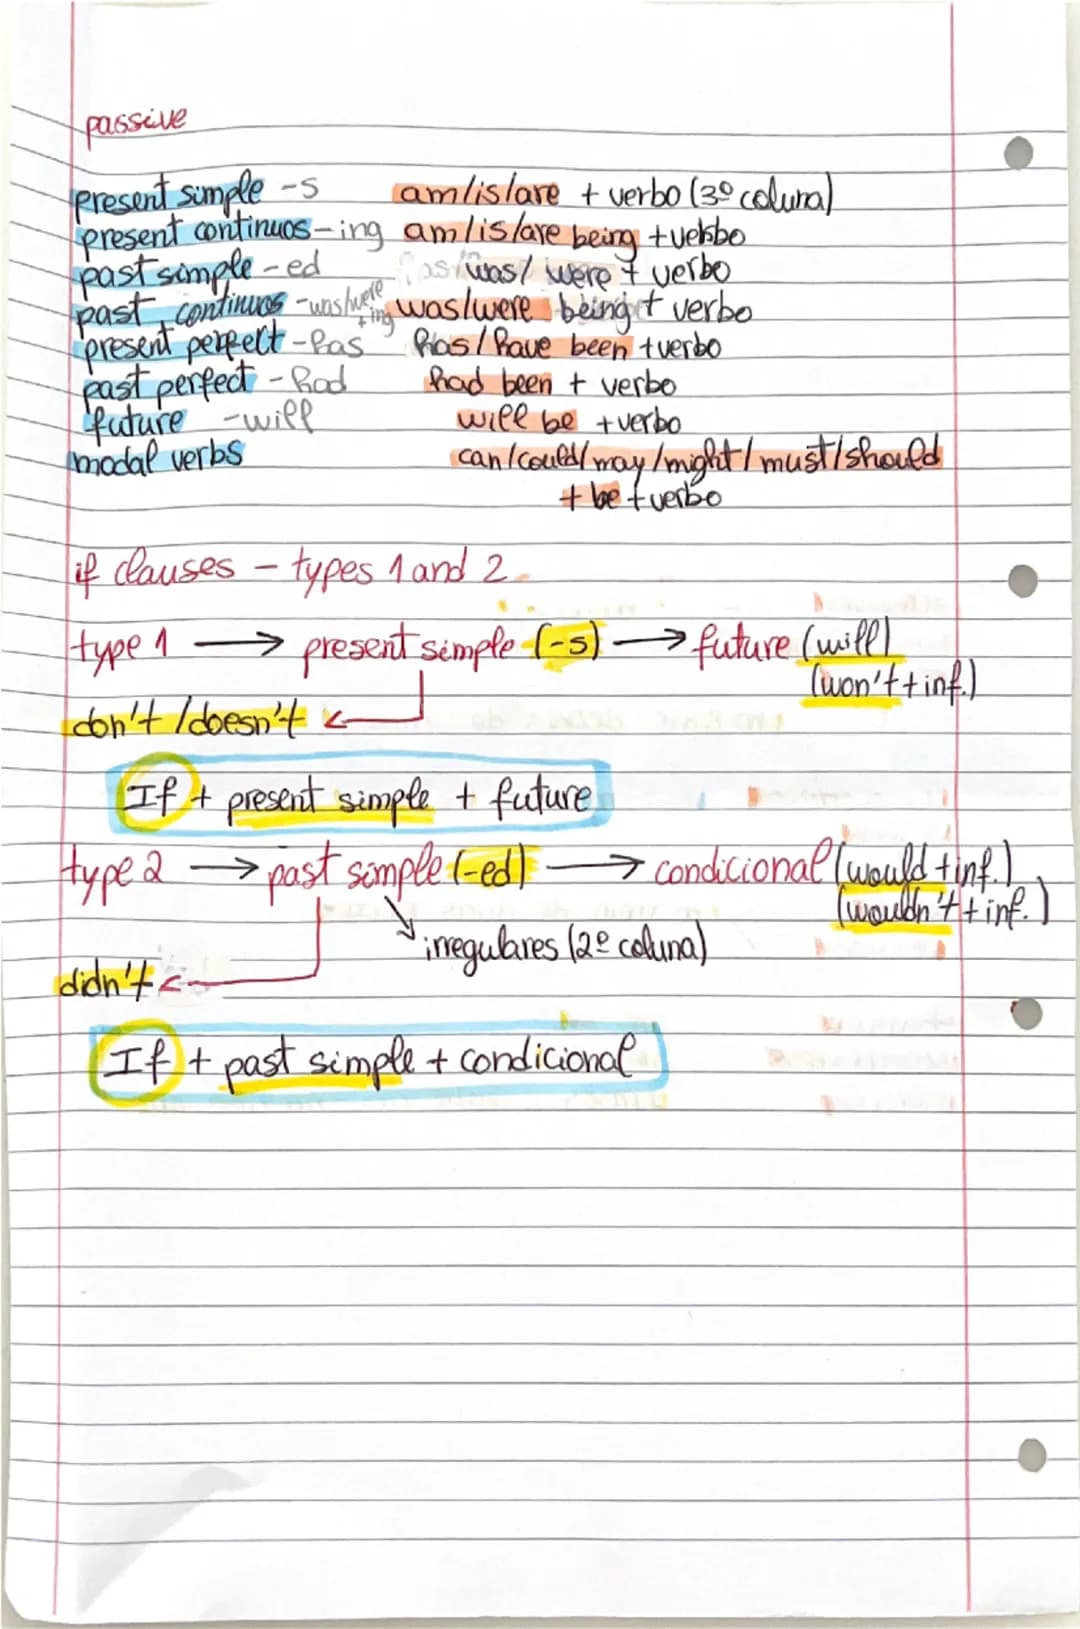 passive
present simple -s am/is/are + verbo (3º coluna)
present continuos -ing am/is/are being + verbo
past simple -ed was/ were + verbo
past continuos -was/were +ing was/were being + verbo
present perfect -has has/have been + verbo
past perfect -had had been + verbo
future -will will be + verbo
modal verbs can/could/may/might/must/should
+ be + verbo
if clauses - types 1 and 2
type 1 → present simple (-s) → future (will)
(won't + inf.)
don't /doesn't
If + present simple + future
type 2 → past simple (-ed) → condicional (would + inf.)
(wouldn't + inf.)
irregulares (2º coluna)
didn't
If + past simple + condicional